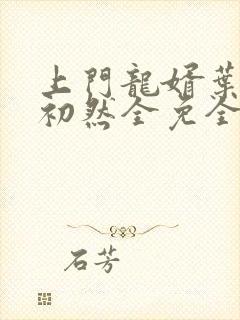 上門龍婿葉
初然全免全
石芳